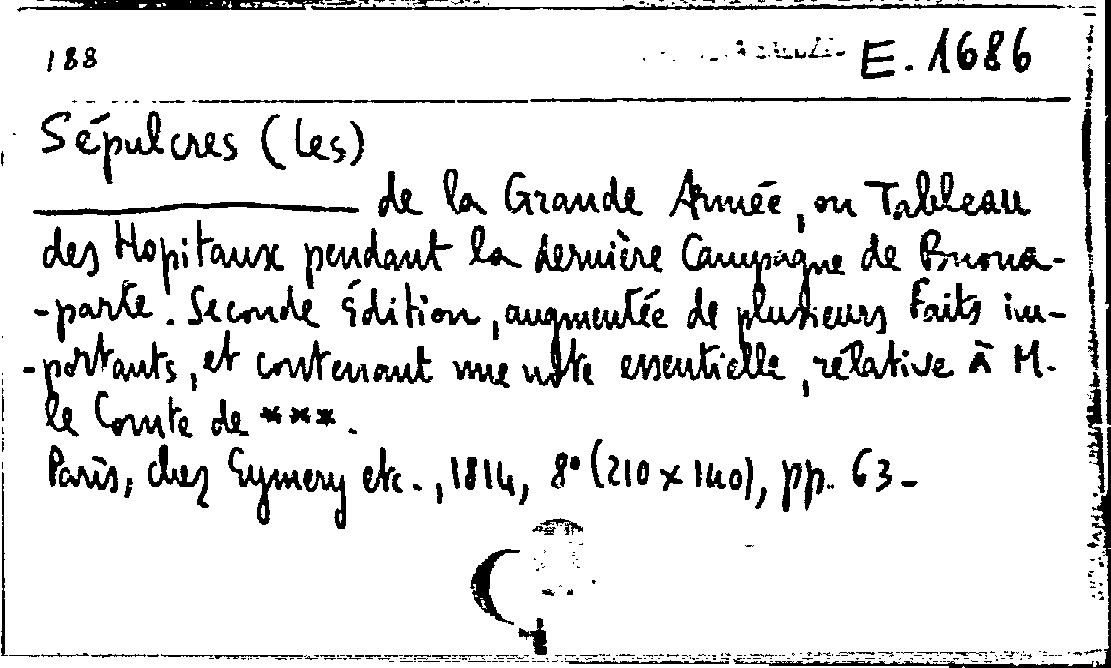 188 E. 1686
Sépulcres (les)
de la Grande Armée, ou Tableau
des Hopitaux pendant la dernière Campagne de Buona-
-parte. Seconde Édition, augmentée de plusieurs Faits im-
-portants, et contenant une note essentielle, rélative à M.
le Comte de ***.
Paris, chez Eymery etc., 1814, 8° (210 x 140), pp. 63-